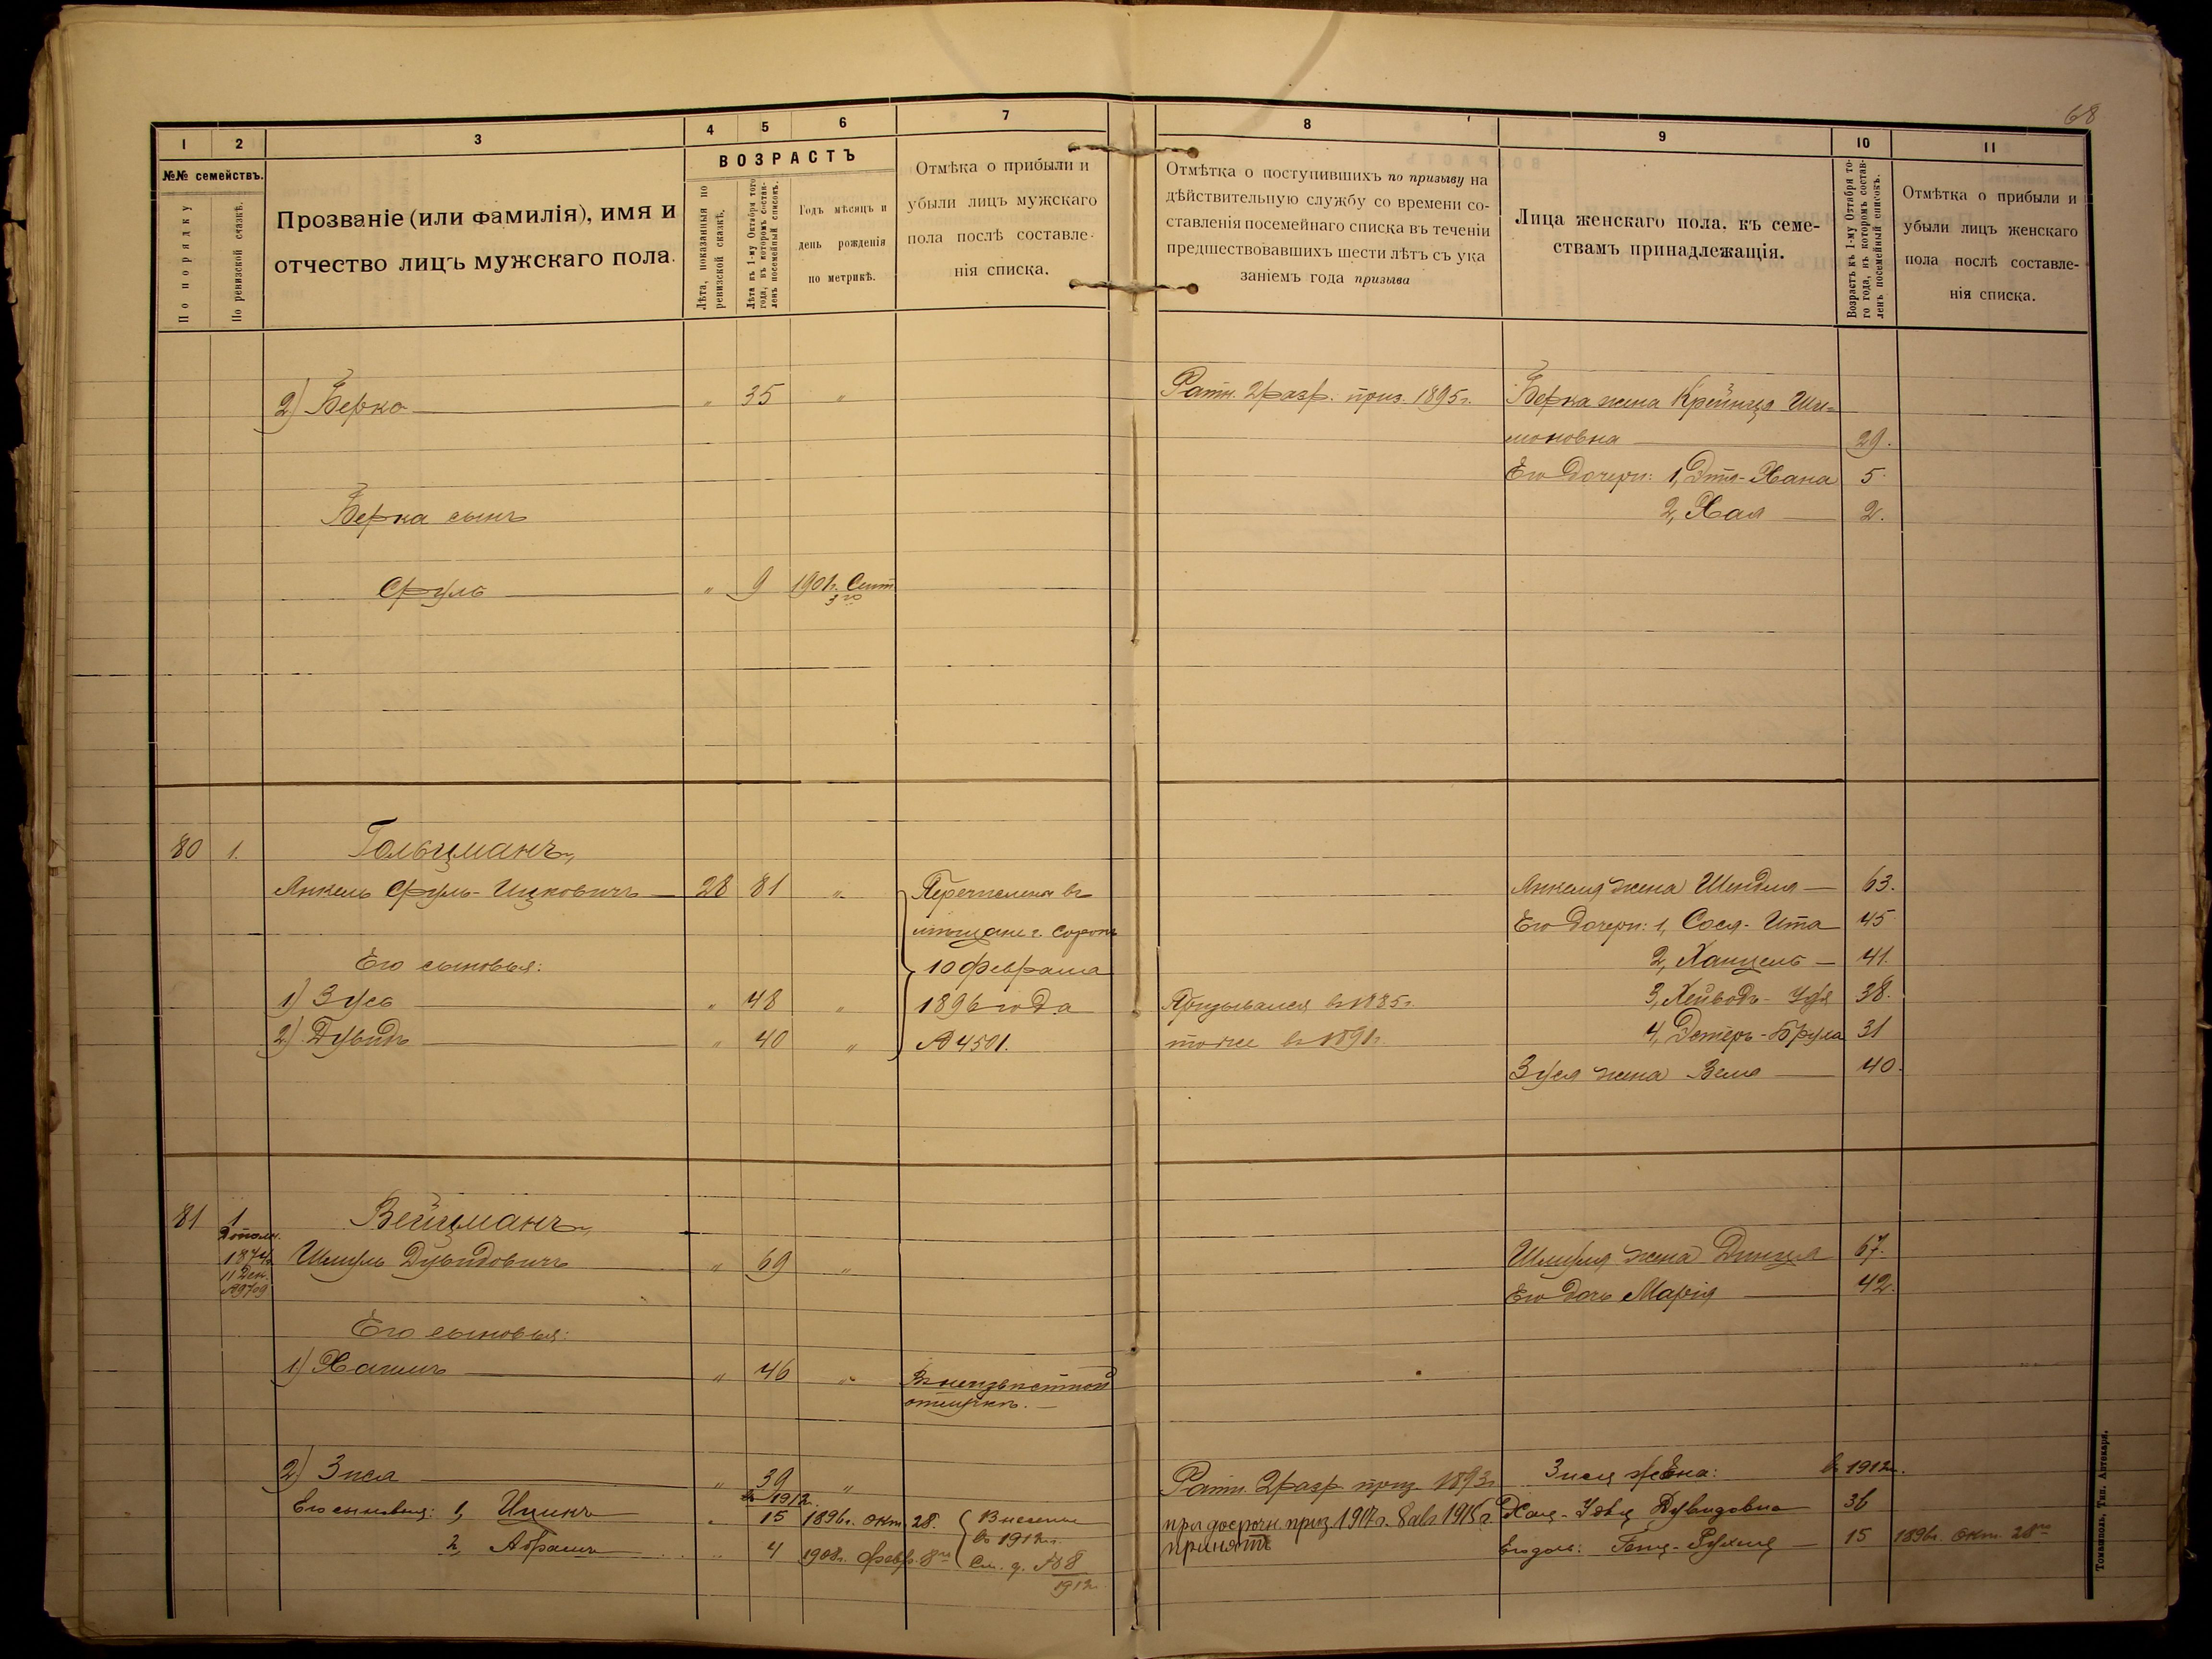 68
1 2 3 4 5 6 7 8 9 10 11
№№ семействъ.
По порядку
По ревизской сказкѣ.
Прозваніе (или фамилія), имя и
отчество лицъ мужскаго пола.
ВОЗРАСТЪ
Лѣта, показанныя по
ревизской сказкѣ.
Лѣта къ 1-му Октября того
года, въ которомъ состав-
ленъ посемейный списокъ.
Годъ мѣсяцъ и
день рожденія
по метрикѣ.
Отмѣка о прибыли и
убыли лицъ мужскаго
пола послѣ составле-
нія списка.
Отмѣтка о поступившихъ по призыву на
дѣйствительную службу со времени со-
ставленія посемейнаго списка въ теченіи
предшествовавшихъ шести лѣтъ съ ука
заніемъ года призыва
Лица женскаго пола, къ семе-
ствамъ принадлежащія.
Возрастъ къ 1-му Октября то-
го года, въ которомъ состав-
ленъ посемейный списокъ.
Отмѣтка о прибыли и
убыли лицъ женскаго
пола послѣ составле-
нія списка.
2) Берко " 35 " Ратн. 2 разр. приз. 1895 г. Берка жена Крейнця Ши-
моновна 29.
Его дочери: 1, Этя-Хана 5.
Берка сынъ 2, Хая 2.
Сруль " 9 1901 г. Сент
3го
80 1. Гольцманъ,
Янкель Сруль-Ицковичъ 28 81 " Перечислены въ Янкеля жена Шендля 63.
мѣщане г. Сорокъ Его дочери: 1, Сося-Ита 45
Его сыновья: 10 февраля 2, Ханцель 41.
1) Зусь " 48 " 1896 года Призывался въ 1885 г. 3, Хейводъ-Удя 38.
2) Дувидъ " 40 " № 4501. тоже въ 1891 г. 4, Эстеръ-Бруха 31
Зуся жена Вела 40.
81 1 Вейцманъ,
Дополн.
1874 Шмуль Дувидовичъ " 69 " Шмуля жена Динця 67.
11 Дек.
№9709
Его дочь Марія 42.
Его сыновья:
1) Хаимъ " 46 " Въ неизвѣстной
отлучкѣ.
2) Зися " 39 " Ратн. 2 разр. приз. 1893 г. Зися жена: въ 1912 г.
въ 1912 г.
Его сыновья: 1, Ицикъ " 15 1896 г. Окт. 28. Внесены при досрочн. приз. 1917 г. 8 авг 1916 г. Хая- Дувидовна 36
въ 1912 г. принятъ
2, Абрамъ " 4 1908 г. Февр. 8го См. д. № 8 Его дочь: Геня-Рухля 15 1896 г. Окт. 28го
1912
Томашполь, Тип. Аптекаря.